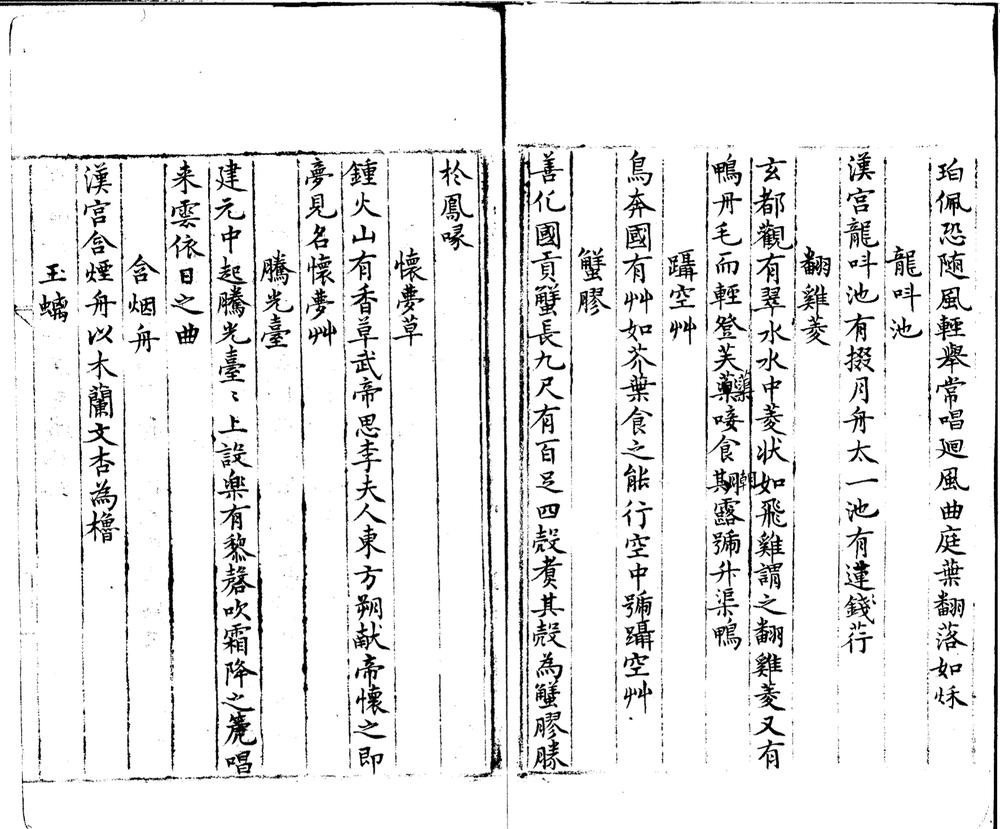 珀佩恐随風輕舉常唱廻風曲庭葉翻落如秌
龍呌池
漢宮龍呌池有掇月舟太一池有蓮錢荇
翻雞菱
玄都觀有翠水水中菱状如飛雞謂之翻雞菱又有
鴨丹毛而輕登芙蕖唼食朝露號升渠鴨
躡空艸
鳥奔國有艸如芥葉食之能行空中號躡空艸
蟹膠
善仡國貢蟹長九尺有百足四殼煑其殼為蟹膠勝
於鳳喙
懷夢草
鍾火山有香草武帝思李夫人東方朔献帝懷之即
夢見名懷夢艸
騰光臺
建元中起騰光臺〻上設楽有黎磬吹霜降之篪唱
来雲依日之曲
含烟舟
漢宮含煙舟以木蘭文杏為櫓
玉螭